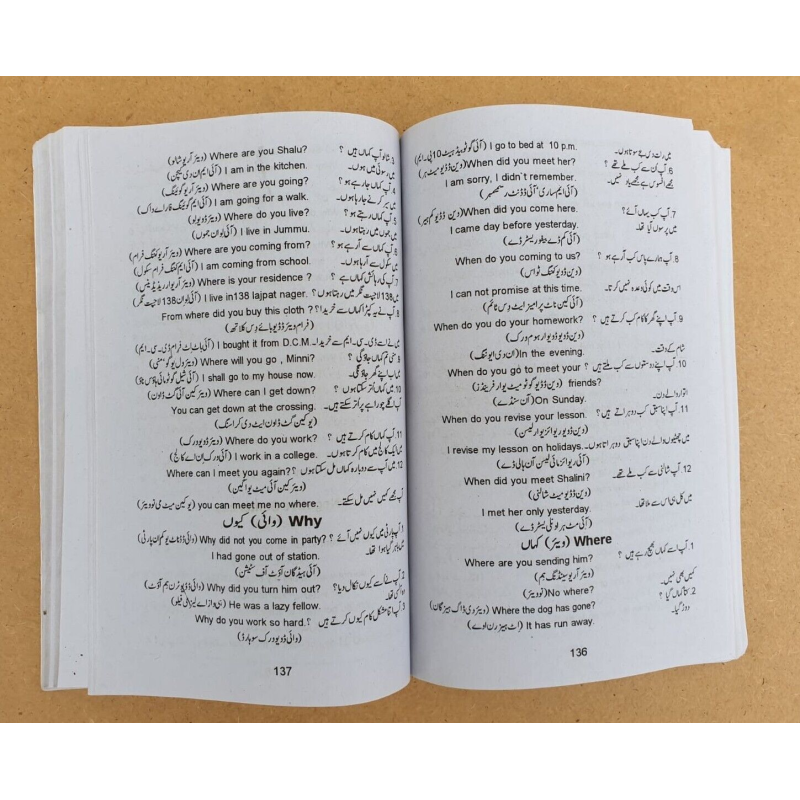 میں رات دس بجے سوتا ہوں۔ I go to bed at 10 p.m. (آئی گو ٹو بیڈ ایٹ 10 پی۔ایم)
6 آپ ان سے کب ملے تھے ؟ When did you meet her? (وین ڈڈ یو میٹ ہر)
مجھے افسوس ہے مجھے یاد نہیں۔ I am sorry, I didn`t remember.
(آئی ایم ساری، آئی ڈڈنٹ ریممبر)
7 آپ کب یہاں آئے؟ When did you come here. (وین ڈڈ یو کم ہیر)
میں پرسوں آیا تھا۔ I came day before yesterday.
(آئی کم ڈے بیفور یسٹر ڈے)
8. آپ ہمارے پاس کب آرہے ہو ؟ When do you coming to us?
(وین ڈو یو کمنگ ٹو اس)
اس وقت میں کوئی وعدہ نہیں کرتا۔ I can not promise at this time.
(آئی کین ناٹ پرامیز ایٹ دِس ٹائم)
9 آپ اپنے گھر کا کام کب کرتے ہیں ؟ When do you do your homework?
(وین ڈو یو ڈو یوار ہوم ورک)
شام کے وقت۔ In the evening. (ان دی ایوننگ)
10 آپ اپنے دوستوں سے کب ملتے ہیں ؟ When do you go to meet your
friends? (وین ڈو یو گو ٹو میٹ یوار فرینڈز)
اتوار والے دن۔ On Sunday. (آن سنڈے)
11. آپ اپنا سبق کب دوہراتے ہیں ؟ When do you revise your lesson.
(وین ڈو یو ریوائز یوار لیسن)
میں چھٹیوں والے دن اپنا سبق دوہراتا ہوں۔ I revise my lesson on holidays.
(آئی ریوائز مائی لیسن آن ہالی ڈے)
12 آپ شالنی سے کب ملے تھے۔ When did you meet Shalini?
(وین ڈڈ یو میٹ شالنی)
میں کل ہی اس سے ملا تھا۔ I met her only yesterday.
(آئی مٹ ہر اونلی یسٹر ڈے)
Where (ویئر) کہاں
1. آپ اسے کہاں بھیج رہے ہیں ؟ Where are you sending him?
(ویئر آر یو سینڈنگ ہم)
کہیں بھی نہیں۔ No where? (نو ویئر)
2. کتا کہاں گیا ؟ Where the dog has gone? (ویئر دی ڈاگ ہیز گان)
دوڑ گیا۔ It has run away. (اِٹ ہیز رن اوے)
136
3 شالو آپ کہاں ہیں ؟ Where are you Shalu? (ویئر آر یو شالو)
میں رسوئی میں ہوں۔ I am in the kitchen. (آئی ایم اِن دی کیچن)
4. آپ کہاں جارہے ہو ؟ Where are you going? (ویئر آر یو گوئنگ)
میں سیر کرنے جارہا ہوں۔ I am going for a walk. (آئی ایم گوئنگ فار اے واک)
5 آپ کہاں رہتے ہو ؟ Where do you live? (ویئر ڈو یو لو)
میں جموں میں رہتا ہوں۔ I live in Jummu. (آئی لو اِن جموں)
6 آپ کہاں سے آرہے ہو ؟ Where are you coming from? (ویئر آر یو کمنگ فرام)
میں سکول سے آرہا ہوں۔ I am coming from school. (آئی ایم کمنگ فرام سکول)
7 آپ کی رہائش کہاں ہے ؟ Where is your residence ? (ویئر از یوار ریذیڈینس)
میں 138 لاجپت نگر میں رہتا ہوں؟ I live in138 lajpat nager. (آئی لو اِن 138 لاجپت نگر)
8 آپ نے یہ کپڑا کہاں سے خریدا؟ From where did you buy this cloth ?
(فرام ویئر ڈڈ یو بائے دِس کلاتھ)
میں نے اسے ڈی۔سی۔ایم سے خریدا۔ I bought it from D.C.M. (آئی باٹ اٹ فرام ڈی۔سی۔ایم)
9 منی تم کہاں جاؤگی ؟ Where will you go , Minni? (ویئر ول یو گو، منی)
میں اب اپنے گھر جاؤنگی۔ I shall go to my house now. (آئی شیل گو ٹو مائی ہاوس ناؤ)
10 میں کہاں اُتر سکتا ہوں ؟ Where can I get down? (ویئر کین آئی گیٹ ڈاون)
آپ اگلے چوراہے پر اُتر سکتے ہیں۔ You can get down at the crossing.
(یو کین گٹ ڈاون ایٹ دی کراسنگ)
11. آپ کہاں کام کرتے ہیں ؟ Where do you work? (ویئر ڈو یو ورک)
میں ایک کالج میں کام کرتا ہوں۔ I work in a college. (آئی ورک اِن اے کالج)
12. میں آپ سے دوبارہ کہاں مل سکتا ہوں ؟ Where can I meet you again?
(ویئر کین آئی میٹ یو اگین)
آپ مجھے کہیں نہیں مل سکتے۔ you can meet me no where. (یو کین میٹ می نو ویئر)
Why (وائی) کیوں
1 آپ پارٹی میں کیوں نہیں آئے ؟ Why did not you come in party? (وائی ڈڈ ناٹ یو کم اِن پارٹی)
I had gone out of station.
(آئی ہیڈ گان آوٹ آف سٹیشن)
2. آپ نے اسے کیوں نکال دیا؟ Why did you turn him out? (وائی ڈڈ یو ٹرن ہم آوٹ)
He was a lazy fellow. (ہی واز اے لیزالی فیلو)
3. آپ اتنا مشکل کام کیوں کرتے ہیں ؟ Why do you work so hard.
(وائی ڈو یو ورک سو ہارڈ)
137